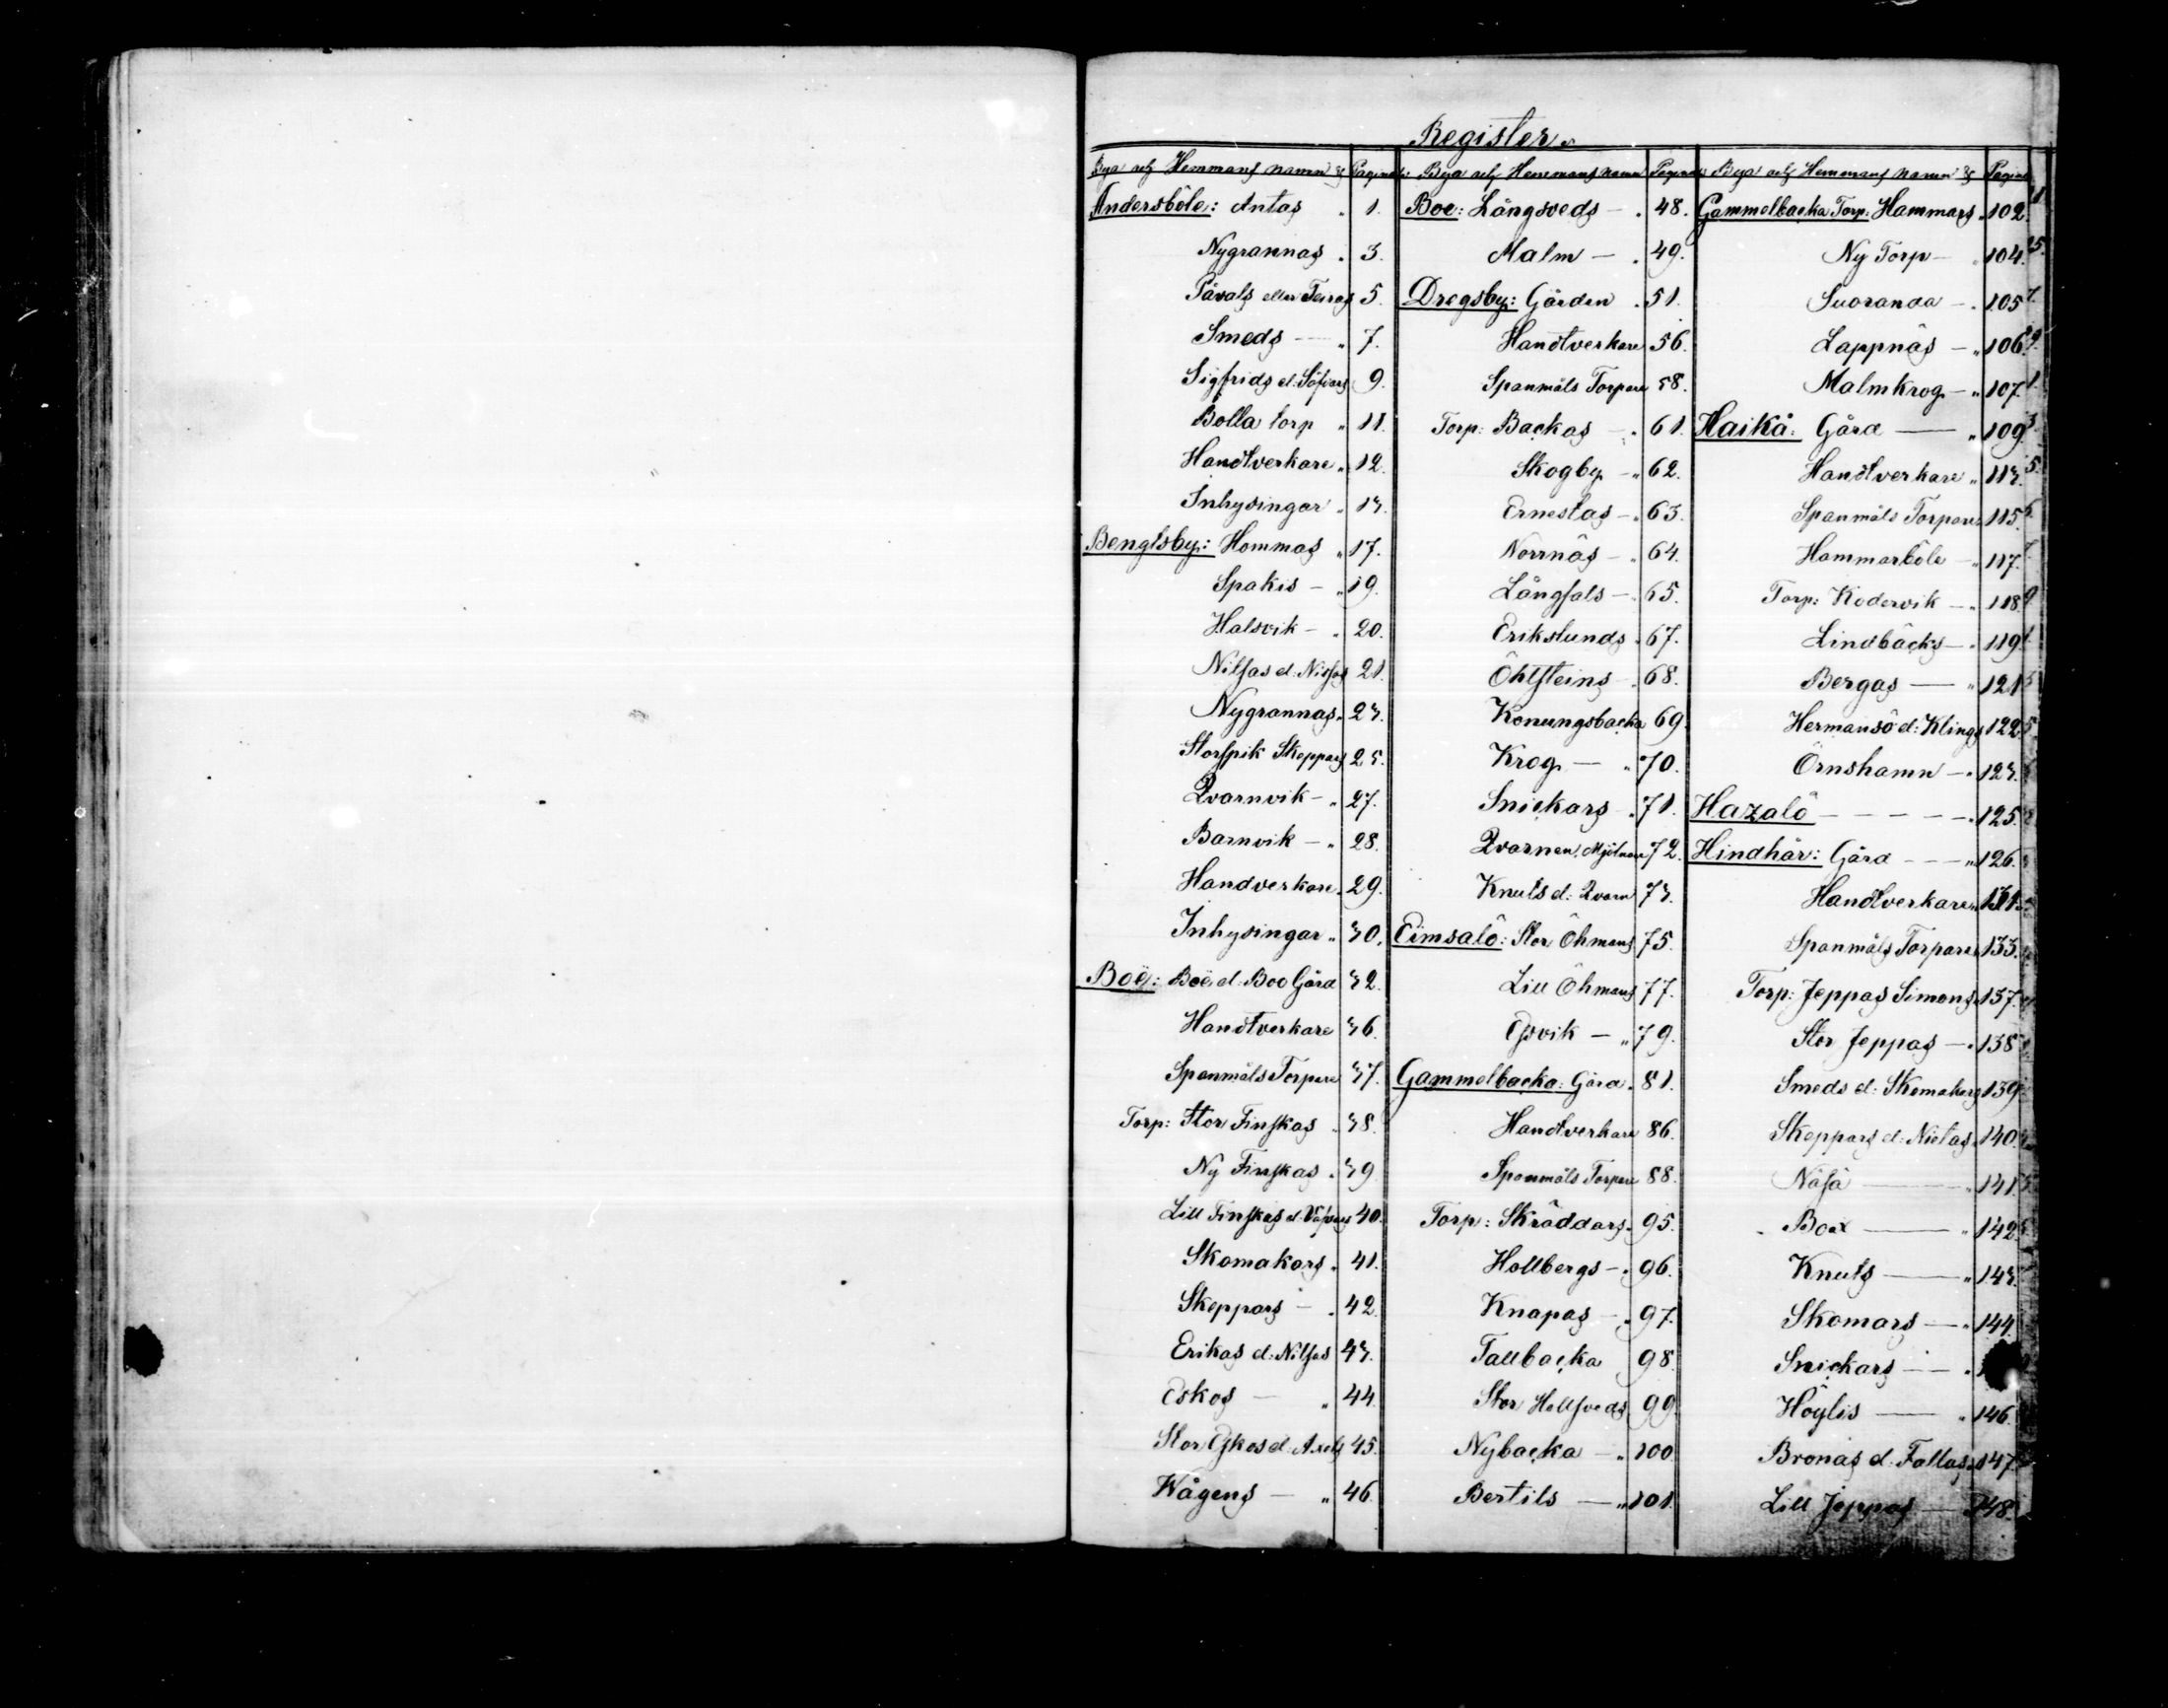 Register
Bya och Hemmans namn & Pagina
Andersböle: Antas 1.
Nygrannas 3.
Påvals eller Teiras 5.
Smeds 7.
Sigfrids el: Söfvars 9.
Bolla torp 11.
Handtverkare 12.
Inhysingar 13.
Bengtsby: Hommas 17.
Spakis 19.
Halsvik 20.
Nilsas el: Nissas 21.
Nygrannas 23.
Storspik Skeppars 25.
Qvarnvik 27.
Barnvik 28.
Handverkare 29.
Inhysingar 30.
Boë: Boë el. Boo Gård 32.
Handtverkare 36.
Spanmåls Torpare 37.
Torp: Stor Finskas 38.
Ny Finskas 39
Lill Finskas el: 40.
Skomakars 41.
Skeppars 42.
Erikas el: Nilsas 43.
Eskos 44.
Stor Eskos el: Axels 45.
Wågens 46.
Bya och Hemmans namn Pagina
Boe: Långsveds 48.
Malm 49.
Dregsby: Gården 51.
Handtverkare 56.
Spanmåls Torpare 58.
Torp: Backas 61.
Skogby 62.
Ernestas 63.
Norrnäs 64.
Långsals 65.
Erikslunds 67.
Öhlsteins 68.
Konungsbacka 69.
Krog 70.
Snickars 71.
Qvarnen, Mjölnare 72.
Knuts el: Qvarn 73.
Eimsalö: Stor Öhmans 75.
Lill Öhmans 77.
Esvik 79.
Gammelbacka: Gård 81.
Handtverkare 86.
Spanmåls Torpare 88.
Torp: Skräddars 95.
Hollbergs 96.
Knapas 97.
Tallbacka 98.
Stor Hellsveds 99.
Nybacka 100
Bertils 101.
Bya och Hemmans namn & Pagina
Gammelbacka Torp: Hammars 102.
Ny Torp 104.
Suoranda 105
Lappnäs 106.
Malmkrog 107.
Haikå: Gård 109
Handtverkare 113.
Spanmåls Torpare 115.
Hammarböle 117.
Torp: Kodervik 118
Lindbäcks 119
Bergas 121
Hermansö el: Klings 122
Örnshamn 123.
Hazalö 125.
Hindhår: Gård 126.
Handtverkare 131.
Spanmåls Torpare 133.
Torp: Jeppas Simons 137.
Stor Jeppas 138
Smeds el: Skomakars 139
Skeppars el: Nietas 140.
Näsä 141
Boa 142
Knuts 143.
Skomars 144.
Snickars
Höylis 146.
Bronas el. Fallas 147
Lill Jeppas 148.